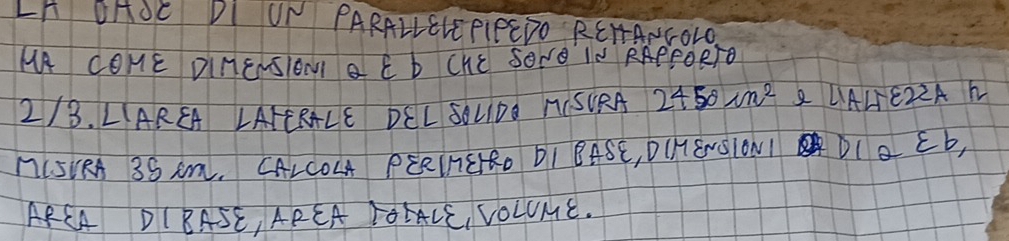 LA BASE DI UN PARALLELEPIPEDO RETTANGOLO
HA COME DIMENSIONI a E b CHE SONO IN RAPPORTO
2/3. L'AREA LATERALE DEL SOLIDO MISURA 2450 cm² e L'ALTEZZA h
MISURA 35 cm. CALCOLA PERIMETRO DI BASE, DIMENSIONI DI a E b,
AREA DI BASE, AREA TOTALE, VOLUME.